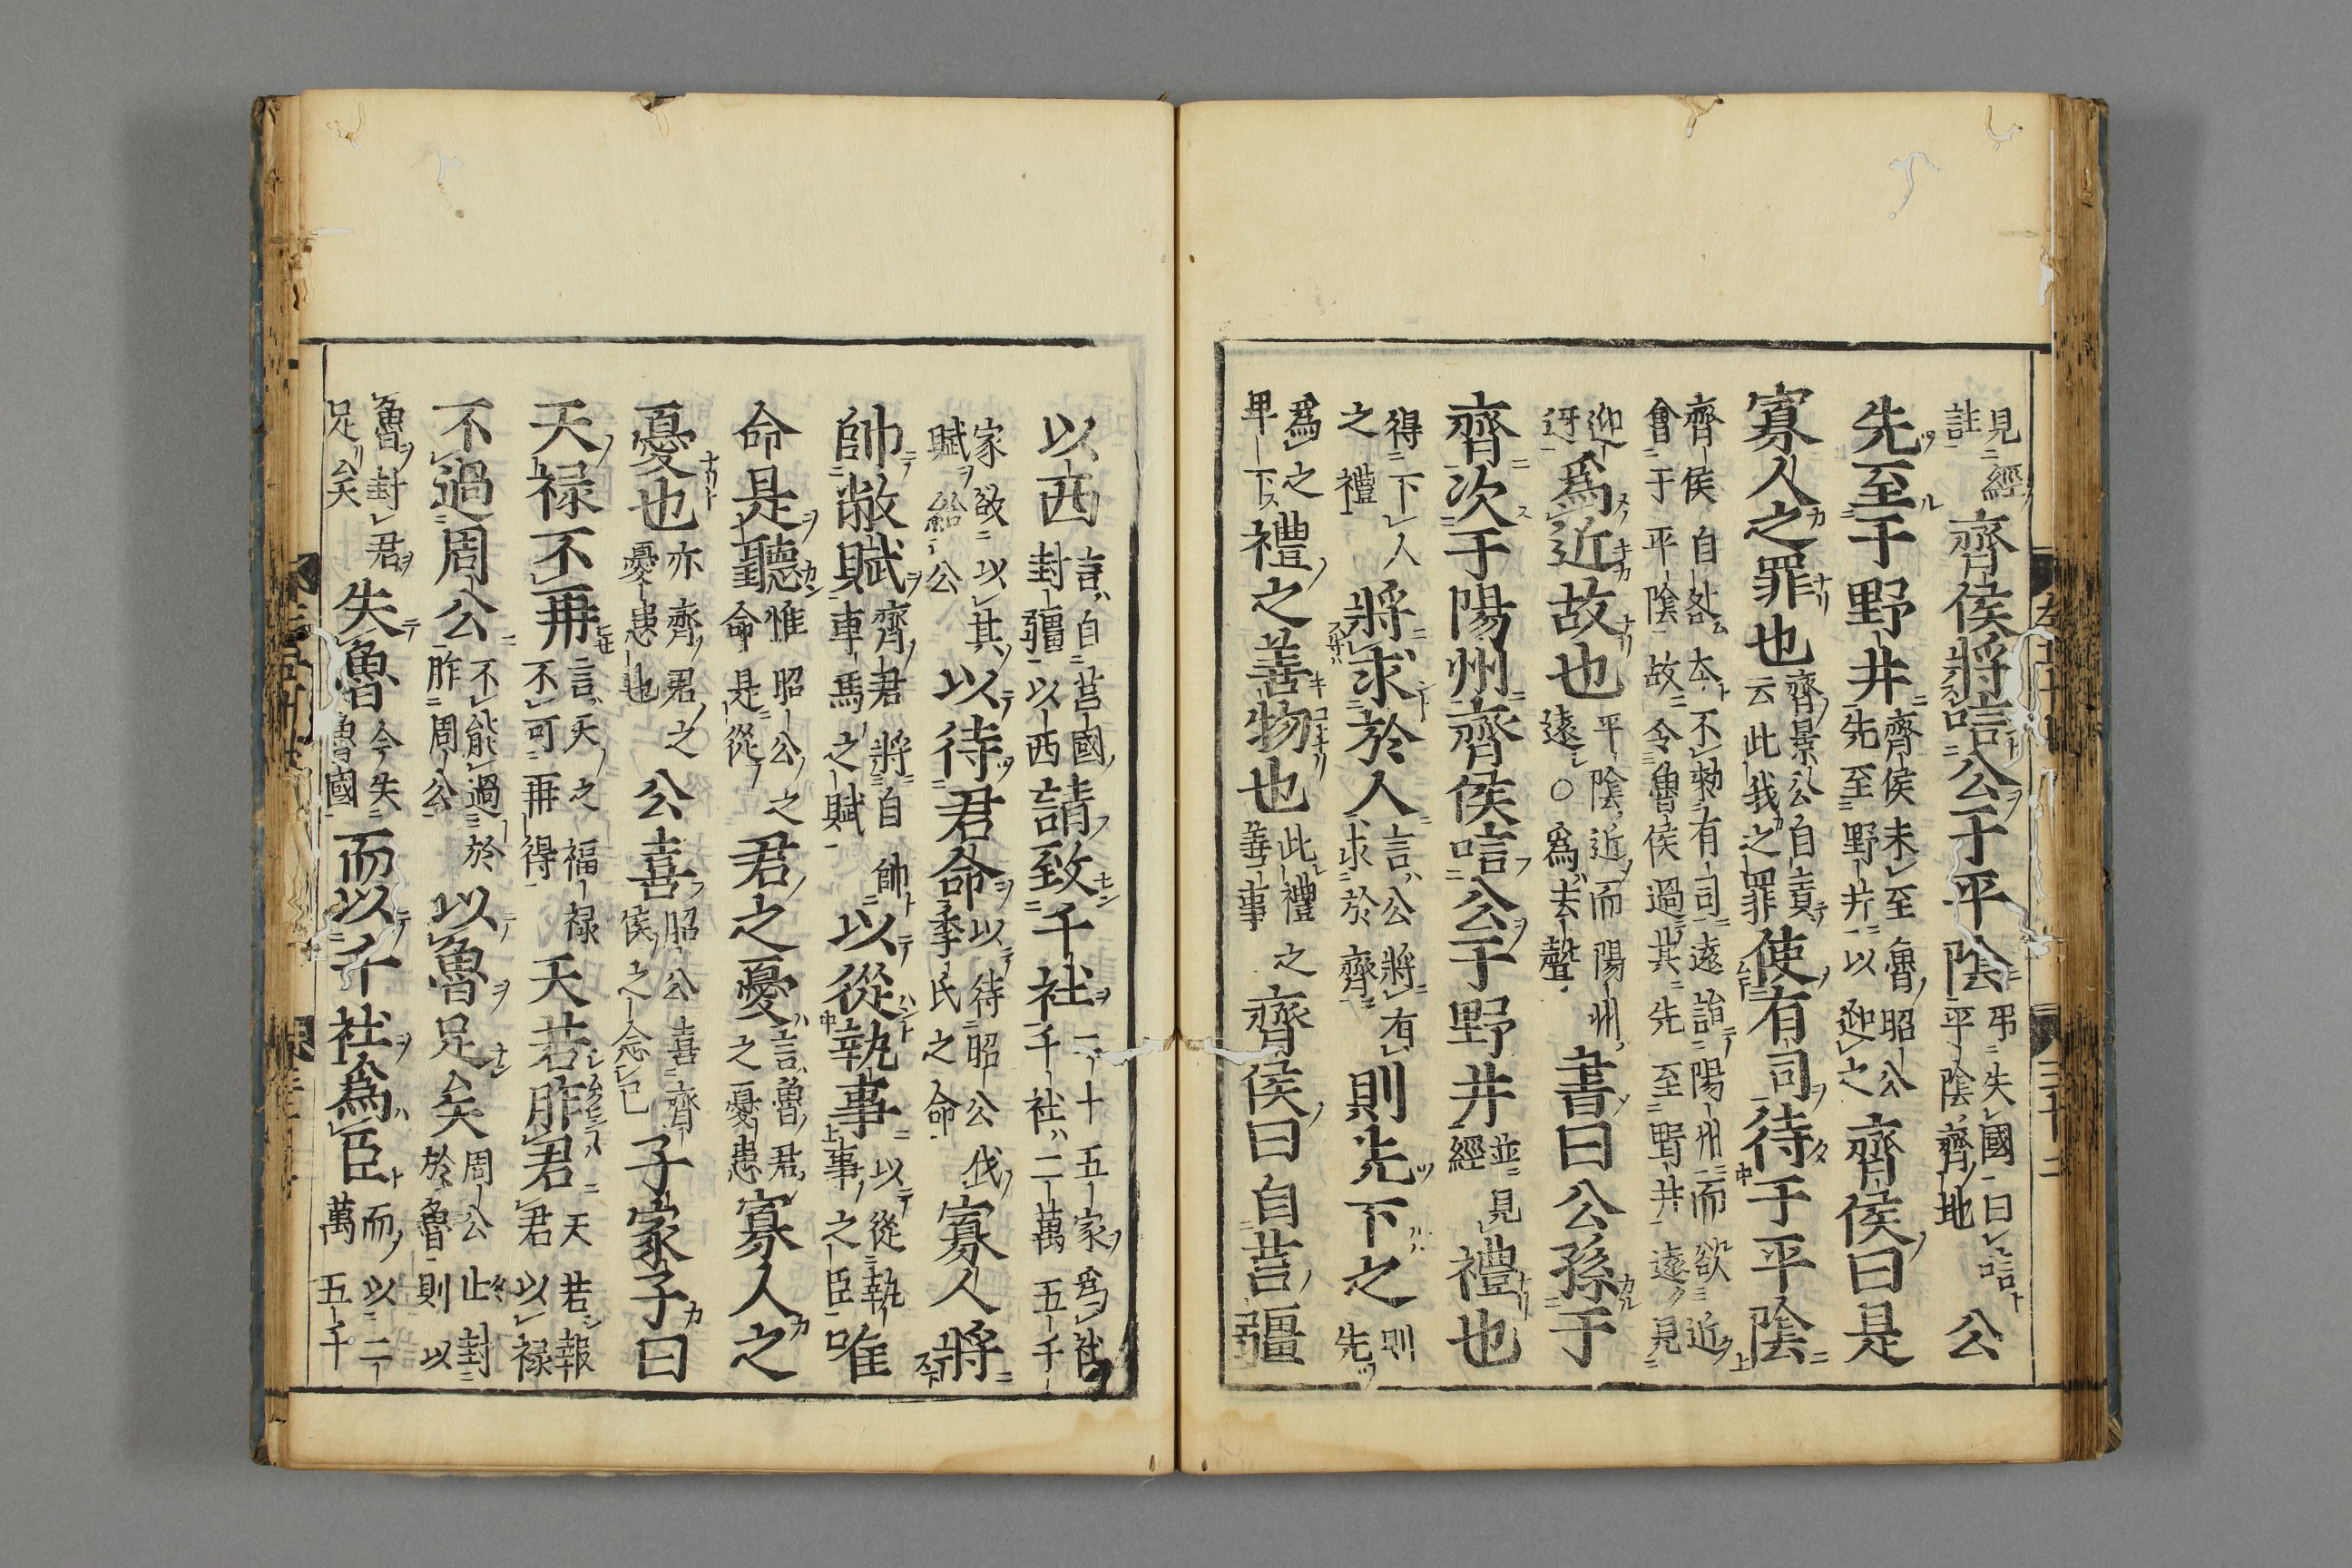 見經註齊侯將唁公于平陰弔失國曰唁平陰齊地公
先至于野井齊侯未至魯昭公先至野井以迎之齊侯曰是
寡人之罪也齊景公自責云此我之罪使有司待于平陰
齊侯自咎本不勑有司遠詣陽州而欲近會于平陰故令魯侯過其先至野井遠見
迎迓爲近故也平陰近而陽州遠○爲去聲書曰公孫于
齊次于陽州齊侯唁公于野井並見經禮也
得下人之禮將求於人言公將有求於齊則先下之訓先
爲之卑下禮之善物也此禮之善事齊侯曰自莒疆
以西言自莒國封疆以西請致千社二十五家爲社千社二萬五千
家欲以其賦給公以待君命以待昭公伐季氏之命寡人將
帥敝賦齊君將自帥車馬之賦以從執事以從執事之臣唯
命是聽惟昭公之命是從君之憂言魯君之憂患寡人之
憂也亦齊君之憂患也公喜昭公喜齊侯之念已子家子曰
天禄不再言天之福禄不可再得天若胙君天若報君以禄
不過周公不能過於胙周公以魯足矣周公止封於魯則以
魯封君足矣失魯今失魯國而以千社爲臣而以二萬五千